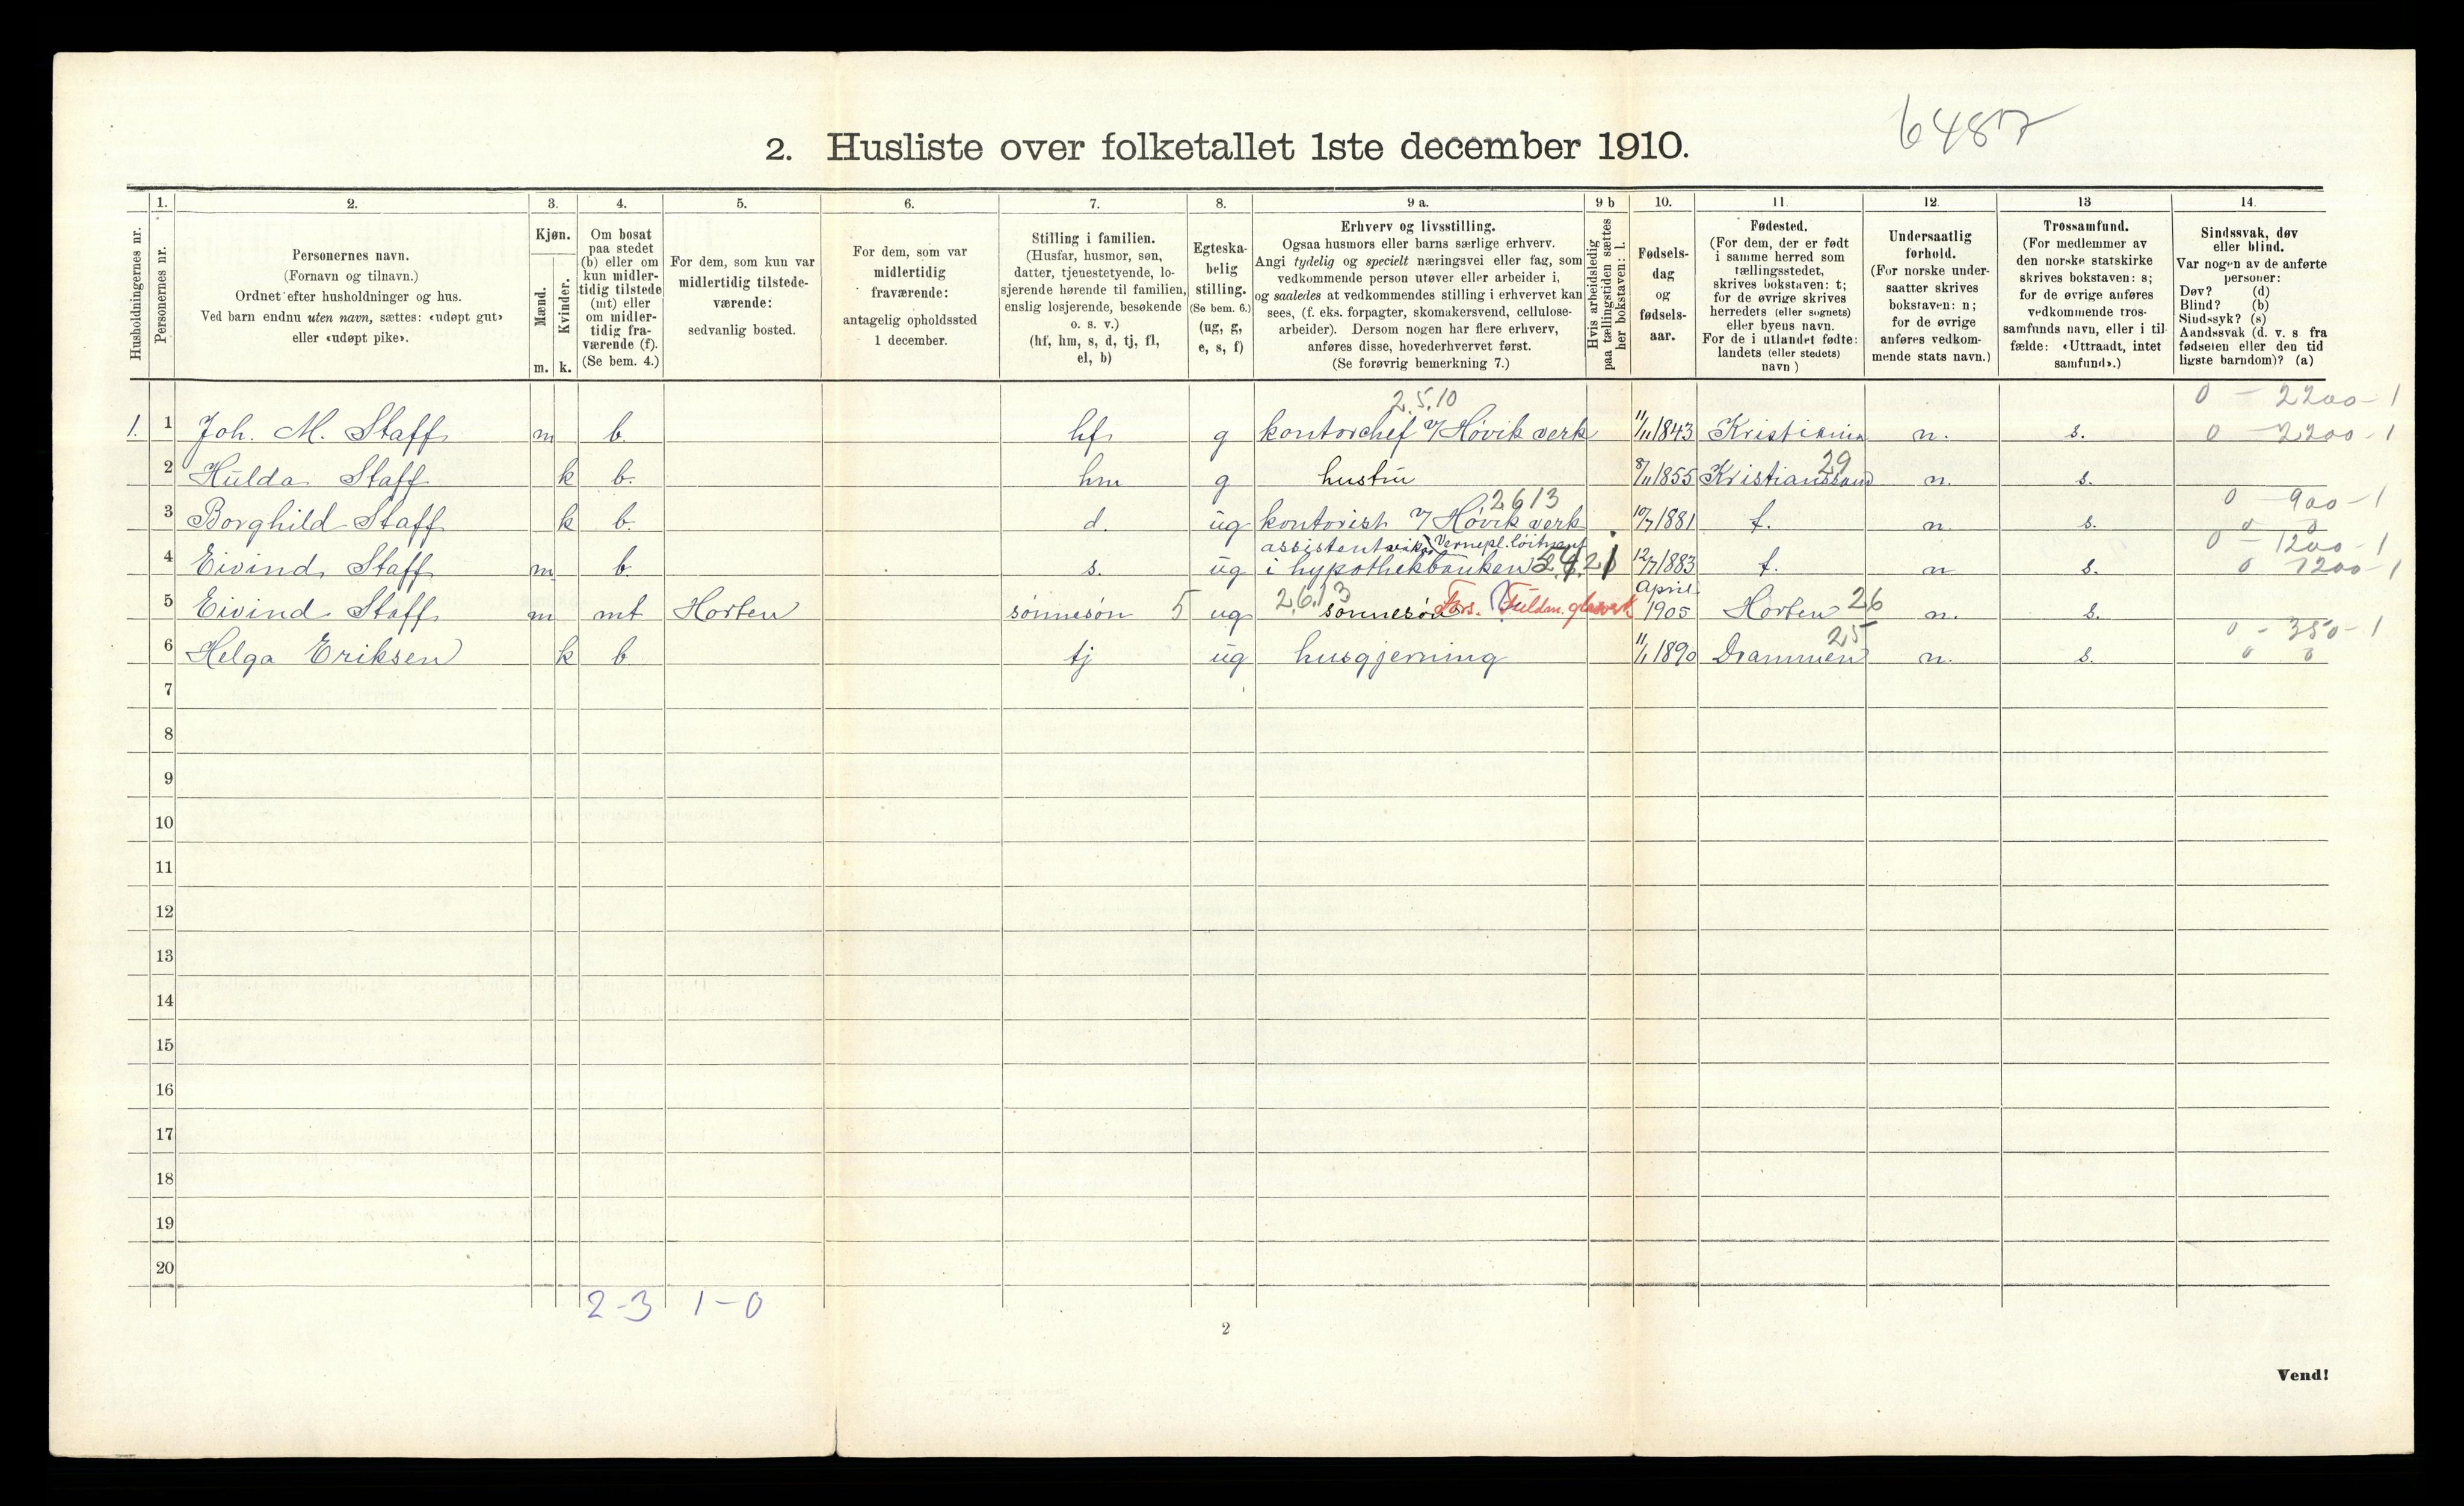 6487
2. Husliste over folketallet 1ste december 1910.
Husholdningernes nr.
1. Personernes nr.
2. Personernes navn.
(Fornavn og tilnavn.)
Ordnet efter husholdninger og hus.
Ved barn endnu uten navn, sættes: «udøpt gut»
eller «udøpt pike».
3. Kjøn.
Mænd. Kvinder.
m. k.
4. Om bosat
paa stedet
(b) eller om
kun midler-
tidig tilstede
(mt) eller
om midler-
tidig fra-
værende (f).
(Se bem. 4.)
5. For dem, som kun var
midlertidig tilstede-
værende:
sedvanlig bosted.
6. For dem, som var
midlertidig
fraværende:
antagelig opholdssted
1 december.
7. Stilling i familien.
(Husfar, husmor, søn,
datter, tjenestetyende, lo-
sjerende hørende til familien,
enslig losjerende, besøkende
o. s. v.)
(hf, hm, s, d, tj, fl,
el, b)
8. Egteska-
belig
stilling.
(Se bem. 6.)
(ug, g,
e, s, f)
9 a. Erhverv og livsstilling.
Ogsaa husmors eller barns særlige erhverv.
Angi tydelig og specielt næringsvei eller fag, som
vedkommende person utøver eller arbeider i,
og saaledes at vedkommendes stilling i erhvervet kan
sees, (f. eks. forpagter, skomakersvend, cellulose-
arbeider). Dersom nogen har flere erhverv,
anføres disse, hovederhvervet først.
(Se forøvrig bemerkning 7.)
9 b Hvis arbeidsledig
paa tællingstiden sættes
her bokstaven: l.
10. Fødsels-
dag
og
fødsels-
aar.
11. Fødested.
(For dem, der er født
i samme herred som
tællingsstedet,
skrives bokstaven: t;
for de øvrige skrives
herredets (eller sognets)
eller byens navn.
For de i utlandet fødte:
landets (eller stedets)
navn )
12. Undersaatlig
forhold.
(For norske under-
saatter skrives
bokstaven: n;
for de øvrige
anføres vedkom-
mende stats navn.)
13 Trossamfund.
(For medlemmer av
den norske statskirke
skrives bokstaven: s;
for de øvrige anføres
vedkommende tros-
samfunds navn, eller i til-
fælde: «Uttraadt, intet
samfund».)
14. Sindssvak, døv
eller blind.
Var nogen av de anførte
personer:
Døv? (d)
Blind? (b)
Sindssyk? (s)
Aandssvak (d. v. s fra
fødselen eller den tid
ligste barndom)? (a)
2.5.10 0 - 2200 - 1
1. 1 Joh. M. Staff m b. hf. g kontorchef v/ Høvik verk 11/11 1843 Kristiania n. s. 0 - 2200 - 1
29
2 Hulda Staff k b. hm g hustru 8/11 1855 Kristianssand n. s.
2613 0 900 - 1
3 Borghild Staff k b. d. ug kontorist v/ Høvik verk 10/7 1881 t. n. s. 0 0
assistent Vernepl. løitnant 0 - 1200 - 1
4 Eivind Staff m b. s. ug i hypothekbanken 12/7 1883 t. n s. 0 1200 - 1
2.6.13 April 26
5 Eivind Staff m mt Horten sønnesøn 5 ug sønnesøn Fors. Fuldm. glasverk 1905 Horten n. s.
25 0 - 350 - 1
6 Helga Eriksen k b tj ug husgjerning 11/1 1890 Drammen n. s. 0 0
7
8
9
10
11
12
13
14
15
16
17
18
19
20
2-3 1-0
2
Vend!